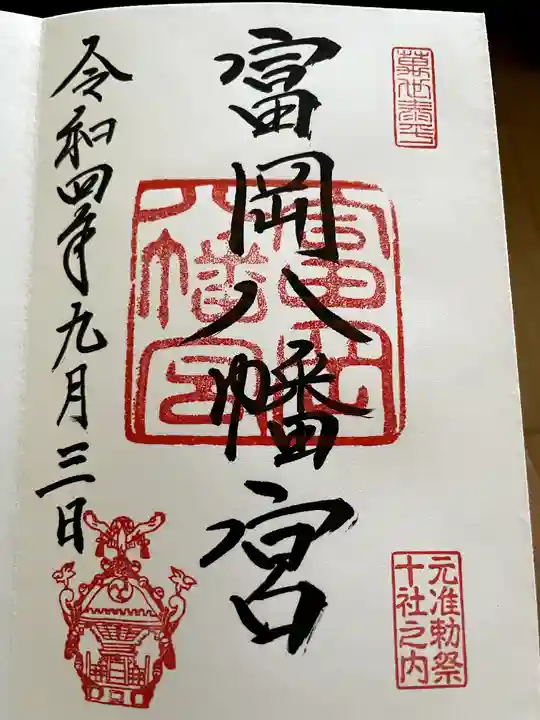 萬世泰平
富岡八幡宮
元准勅祭
十社之内
富岡八幡宮
令和四年九月三日